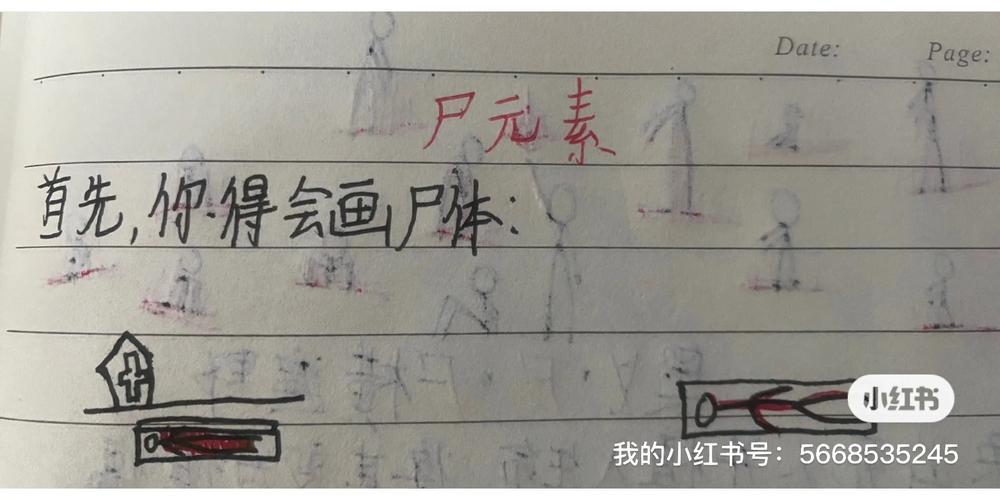 Date: Page:
尸元素
首先,你得会画尸体:
小红书
我的小红书号：5668535245